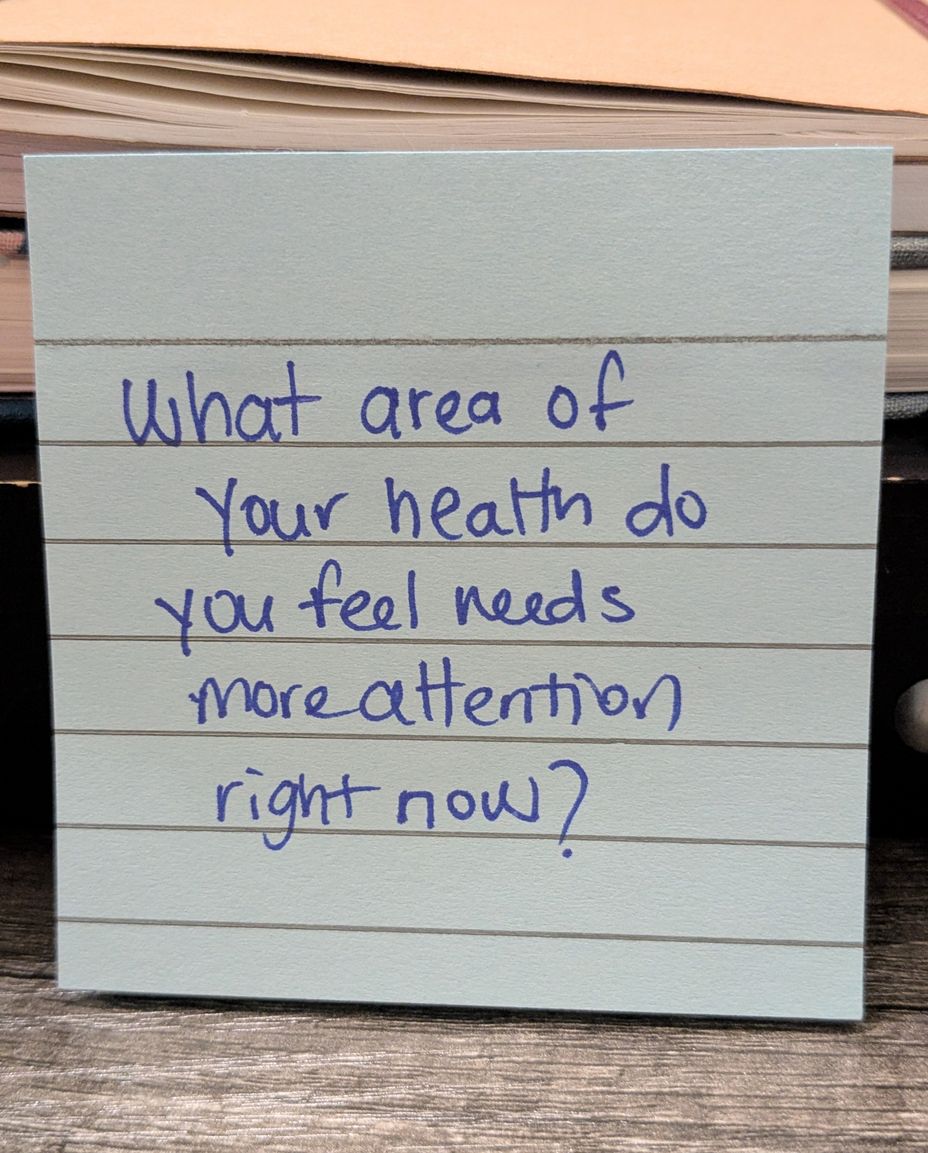 What area of
your health do
you feel needs
more attention
right now?